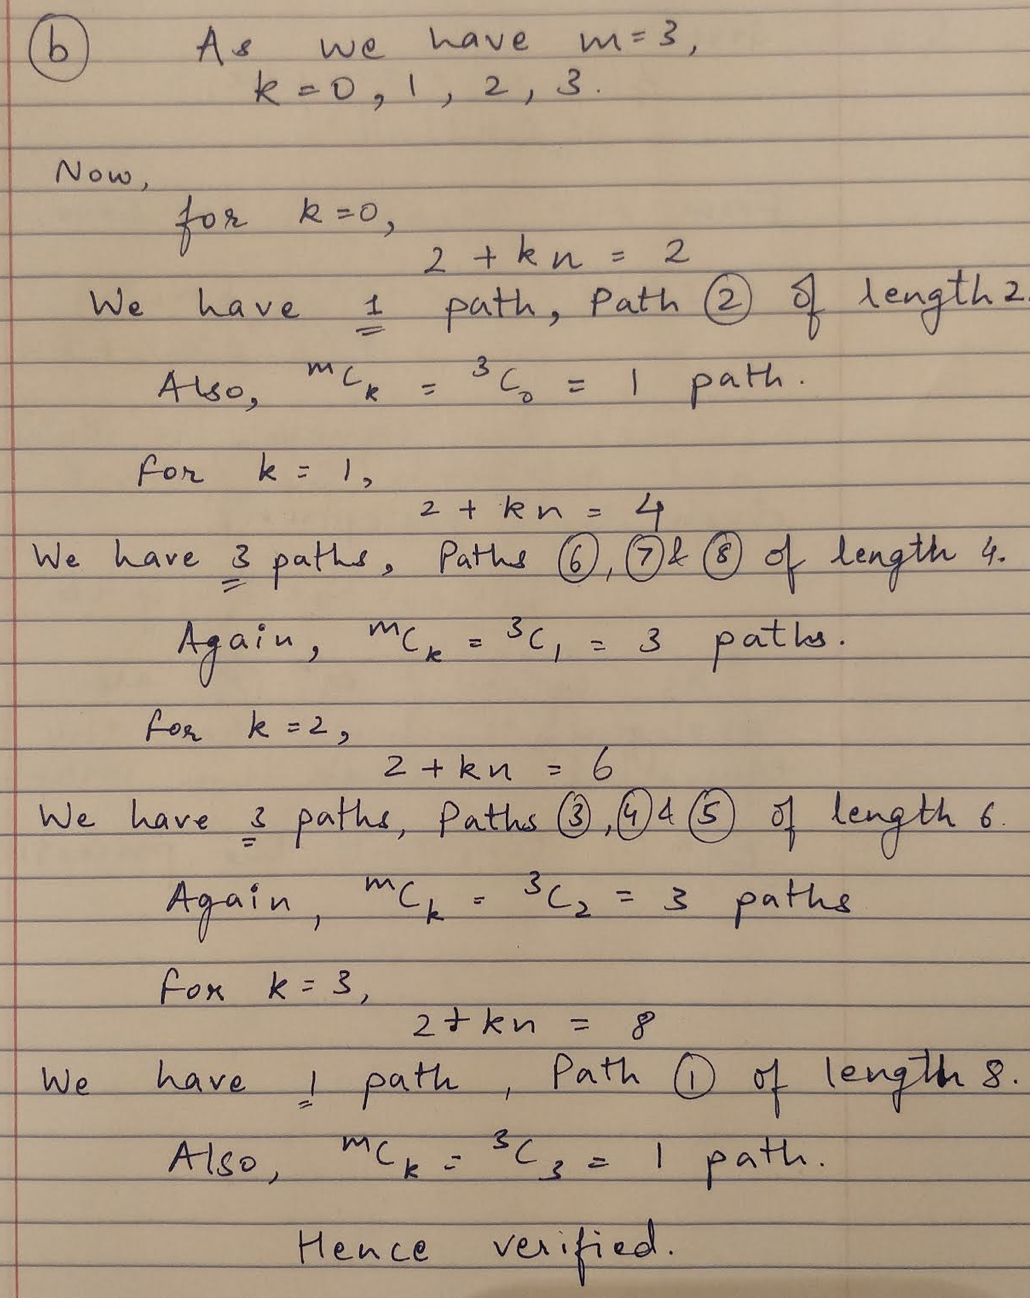 ⓑ As we have m=3,
k=0, 1, 2, 3.
Now,
for k=0,
2 + kn = 2
We have 1 path, Path ② of length 2.
Also, ᵐCₖ = ³C₀ = 1 path.
For k = 1,
2 + kn = 4
We have 3 paths, Paths ⑥, ⑦ & ⑧ of length 4.
Again, ᵐCₖ = ³C₁ = 3 paths.
For k = 2,
2 + kn = 6
We have 3 paths, Paths ③, ④ & ⑤ of length 6.
Again, ᵐCₖ = ³C₂ = 3 paths
For k = 3,
2 + kn = 8
We have 1 path, Path ① of length 8.
Also, ᵐCₖ = ³C₃ = 1 path.
Hence verified.